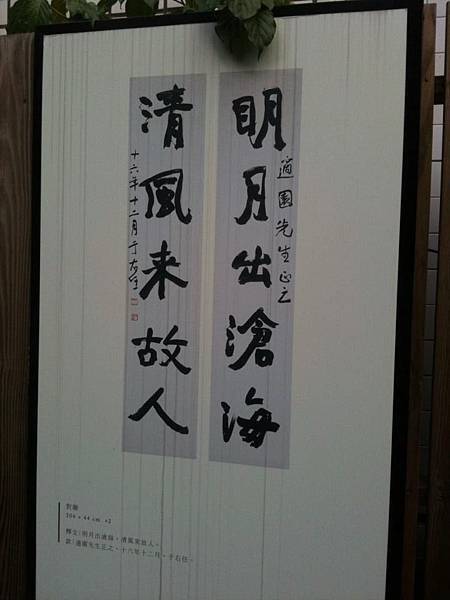 明月出滄海
適園先生正之
清風来故人
十六年十二月于右任
對聯
204 × 44 cm ×2
釋文|明月出滄海，清風來故人。
款|適園先生正之，十六年十二月，于右任。